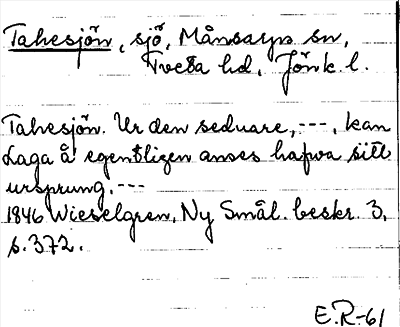 Tahesjön, sjö, Månsarps sn,
Tveta hd, Jönk. l.
Tahesjön. Ur den seduare, ---, kan
Laga å egentligen anses hafwa sitt
ursprung. ---
1846 Wieselgren, Ny Smål. beskr. 3,
s. 372.
E.R-61